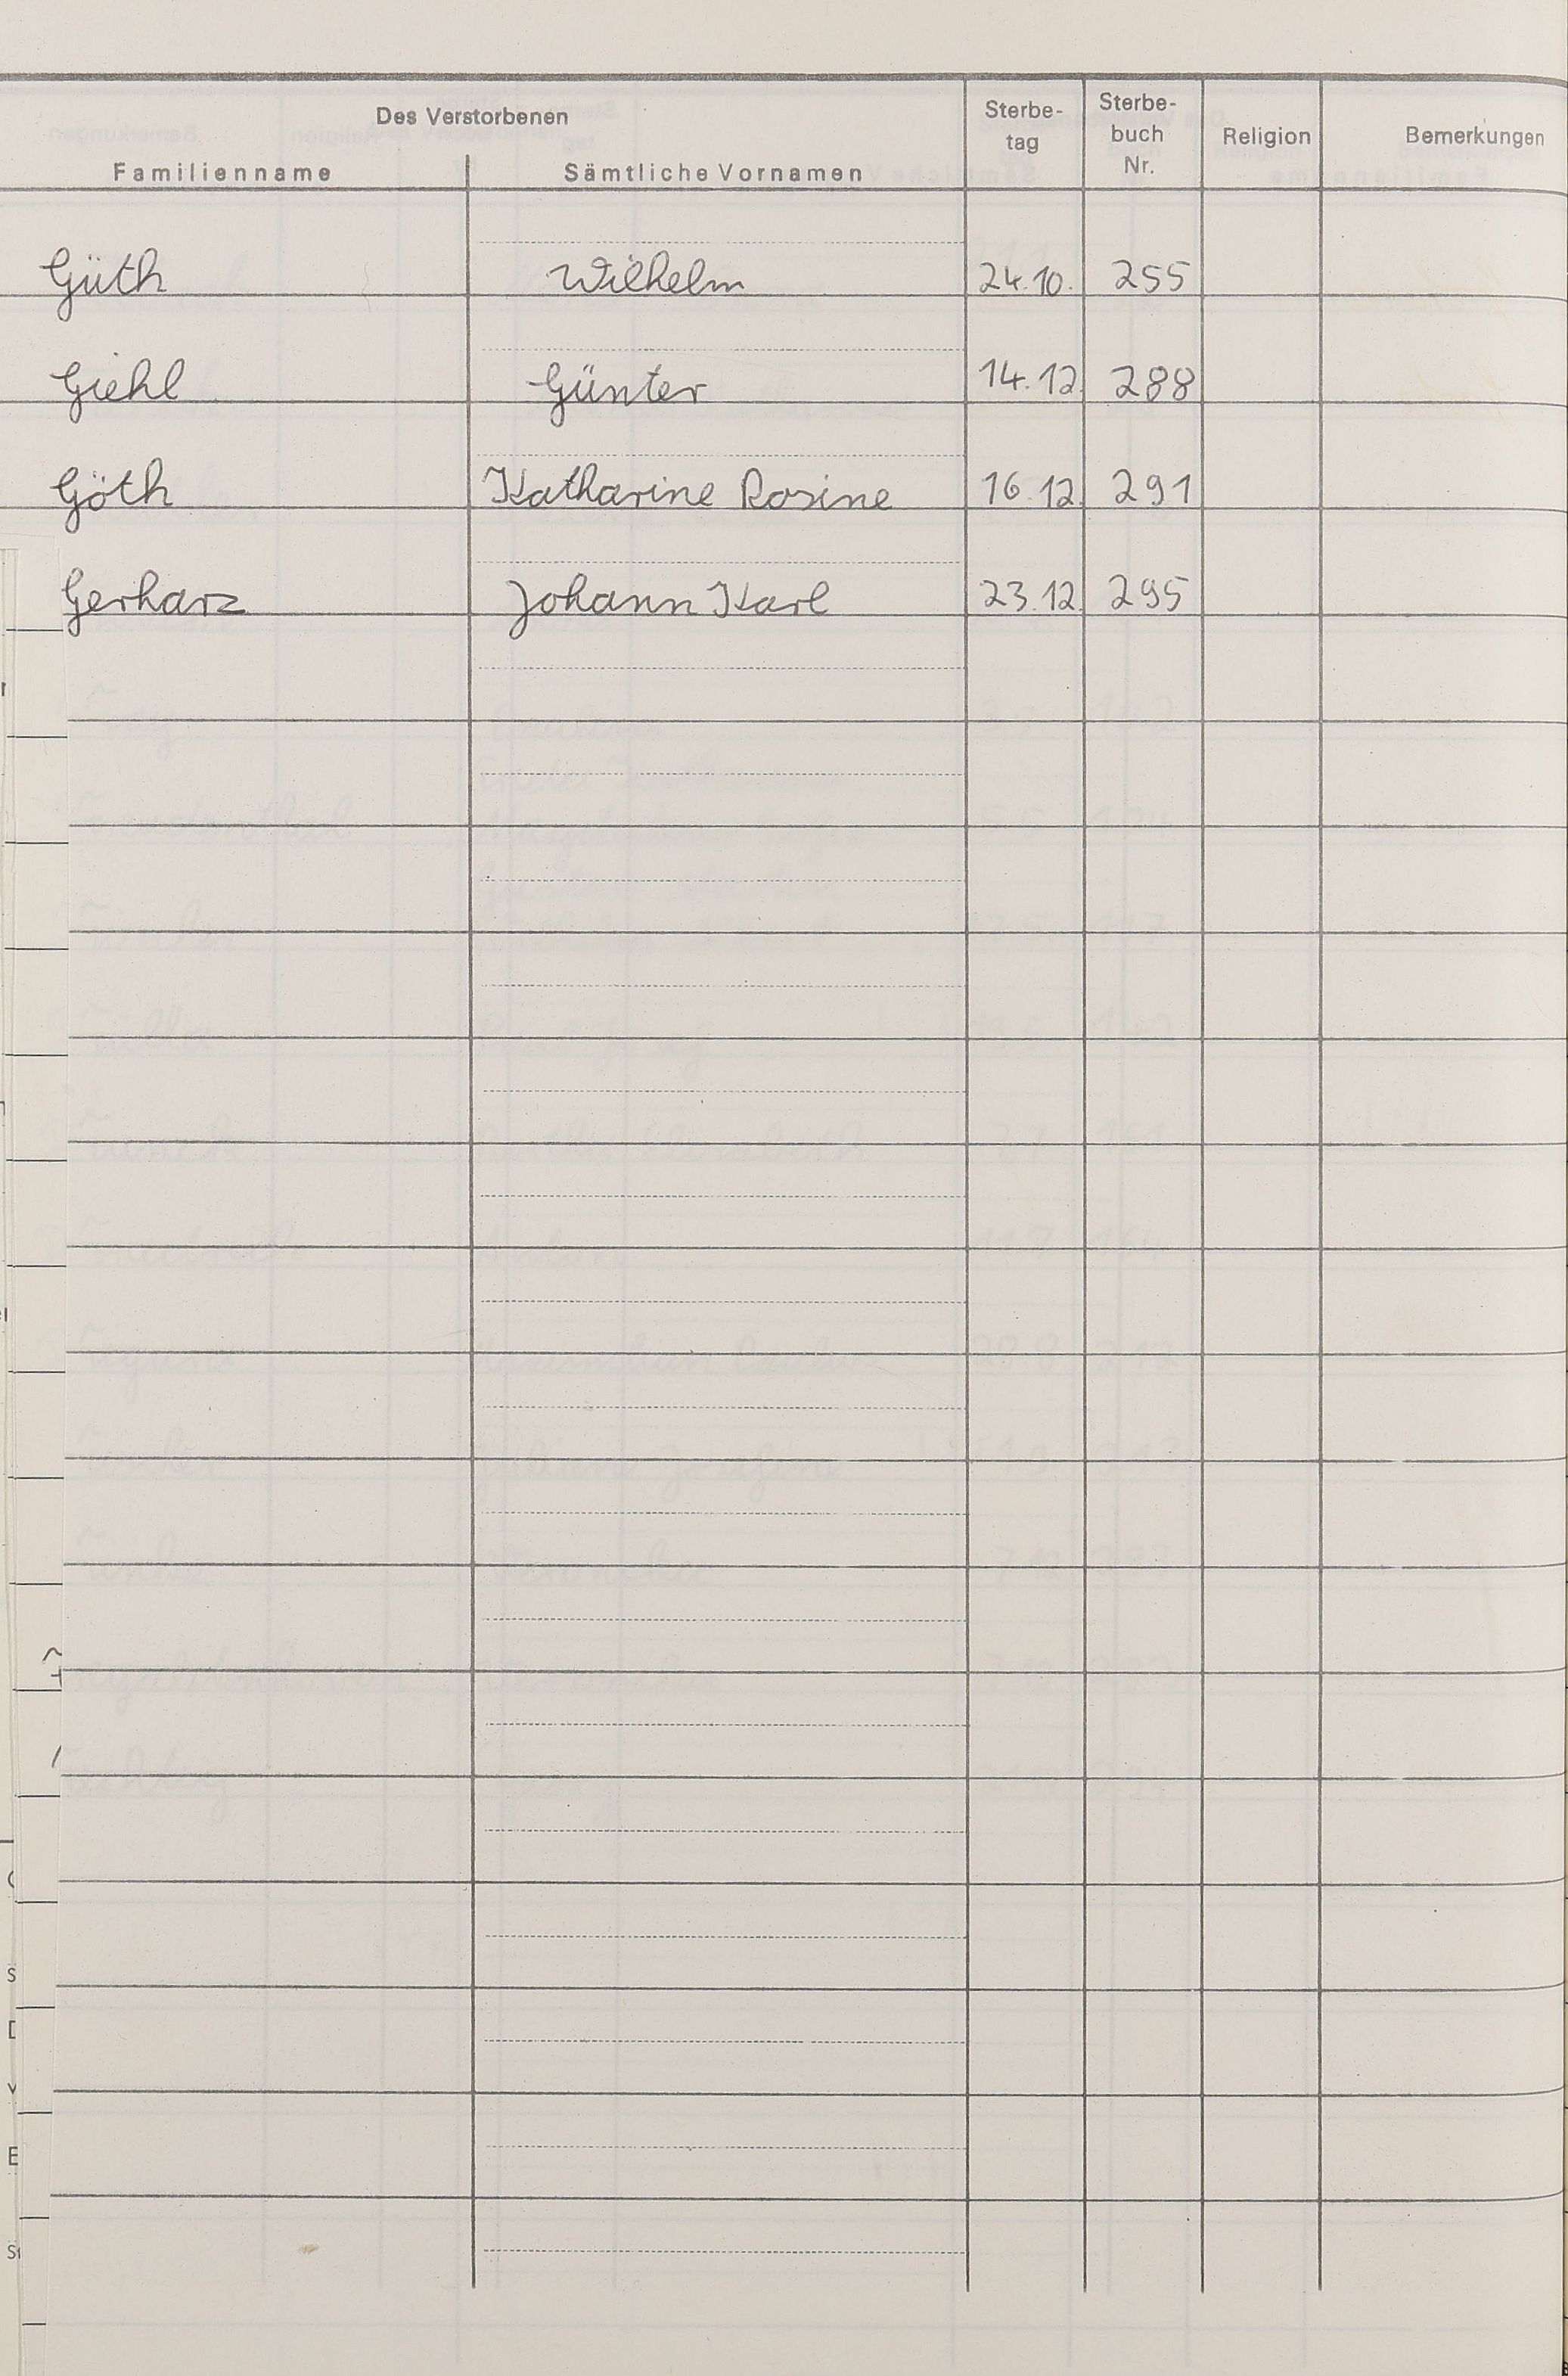 Des Verstorbenen
Familienname Sämtliche Vornamen Sterbe-tag Sterbe-buch Nr. Religion Bemerkungen
Güth Wilhelm 24.10. 255
Giehl Günter 14.12. 288
Göth Katharine Rosine 16.12. 291
Gerharz Johann Karl 23.12. 295